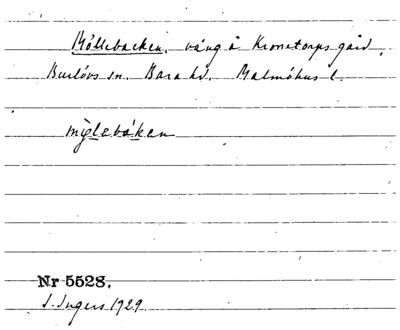 Möllebacken, vång å Kronetorps gård,
Burlövs sn. Bara hd. Malmöhus l.
Nr 5528.
I. Ingers 1929